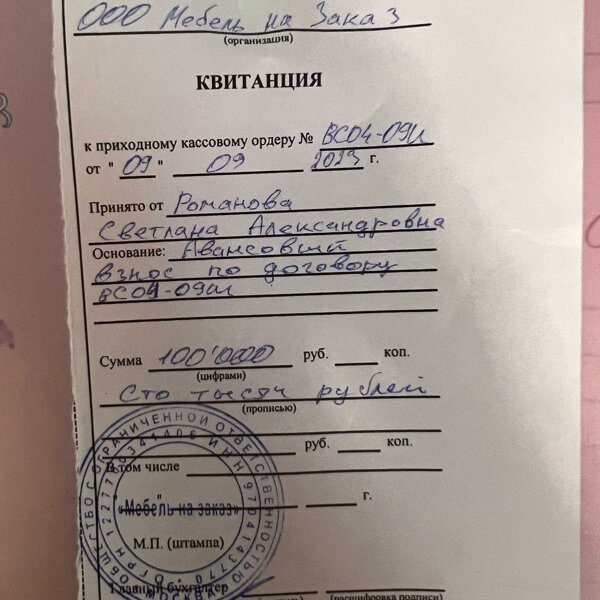 ООО Мебель на Заказ
(организация)
КВИТАНЦИЯ
к приходному кассовому ордеру № ВС04-09И
от "09" 09 2023 г.
Принято от Романова
Светлана Александровна
Основание: Авансовый
взнос по договору
ВС04-09И
Сумма 100'000 руб. коп.
(цифрами)
Сто тысяч рублей
(прописью)
руб. коп.
В том числе
г.
«Мебель на заказ»
М.П. (штампа)
Главный бухгалтер
(расшифровка подписи)
ОБЩЕСТВО С ОГРАНИЧЕННОЙ ОТВЕТСТВЕННОСТЬЮ
МОСКВА